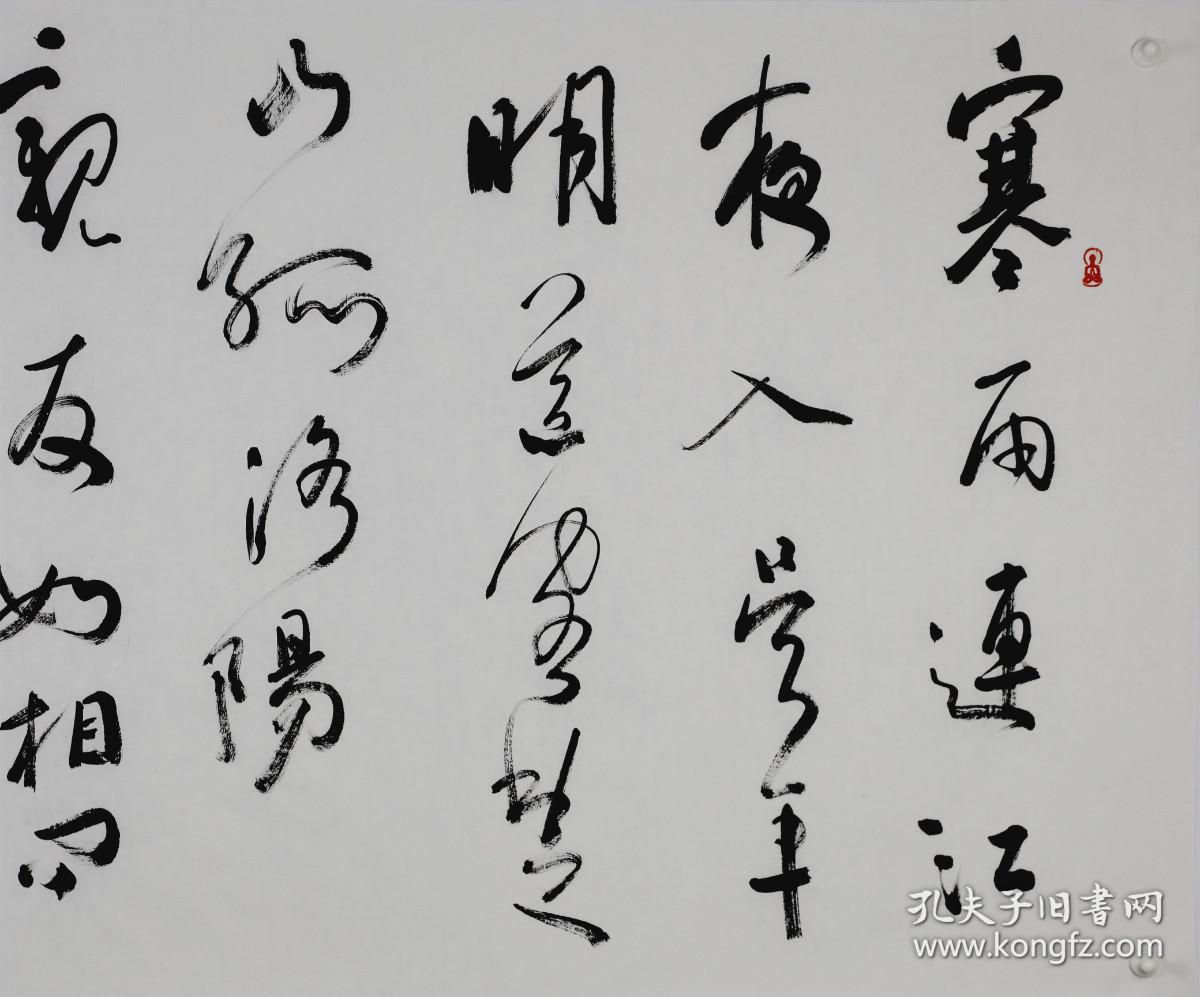 寒雨連江
夜入吳平
明送客楚
山孤洛陽
親友如相問
孔夫子旧書网
www.kongfz.com